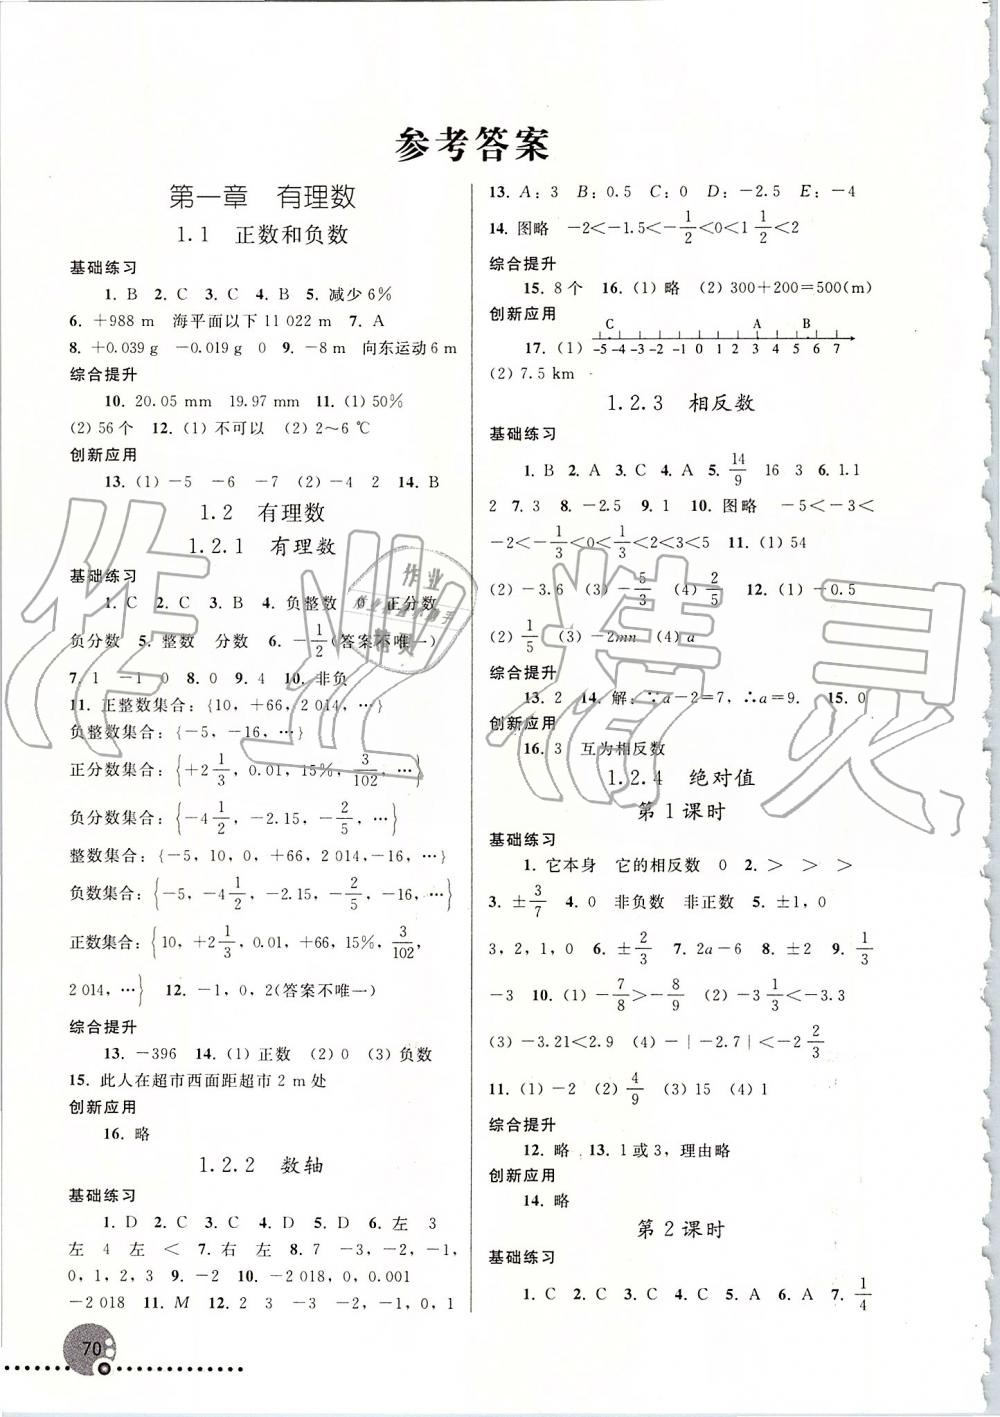 参考答案
第一章 有理数
1.1 正数和负数
基础练习
1. B 2. C 3. C 4. B 5. 减少 6%
6. +988 m 海平面以下 11 022 m 7. A
8. +0.039 g －0.019 g 0 9. －8 m 向东运动 6 m
综合提升
10. 20.05 mm 19.97 mm 11. (1) 50%
(2) 56 个 12. (1) 不可以 (2) 2～6 ℃
创新应用
13. (1) －5 －6 －7 (2) －4 2 14. B
1.2 有理数
1.2.1 有理数
基础练习
1. C 2. C 3. B 4. 负整数 0 正分数
负分数 5. 整数 分数 6. －1/2(答案不唯一)
7. 1 －1 0 8. 0 9. 4 10. 非负
11. 正整数集合：{10，+66，2 014，…}
负整数集合：{－5，－16，…}
正分数集合：{+2 1/3，0.01，15%，3/102，…}
负分数集合：{－4 1/2，－2.15，－2/5，…}
整数集合：{－5，10，0，+66，2 014，－16，…}
负数集合：{－5，－4 1/2，－2.15，－2/5，－16，…}
正数集合：{10，+2 1/3，0.01，+66，15%，3/102，
2 014，…} 12. －1，0，2(答案不唯一)
综合提升
13. －396 14. (1) 正数 (2) 0 (3) 负数
15. 此人在超市西面距超市 2 m 处
创新应用
16. 略
1.2.2 数轴
基础练习
1. D 2. C 3. C 4. D 5. D 6. 左 3
左 4 左 ＜ 7. 右 左 8. 7 －3，－2，－1，
0，1，2，3 9. －2 10. －2 018，0，0.001
－2 018 11. M 12. 2 3 －3 －2，－1，0，1
70
13. A：3 B：0.5 C：0 D：－2.5 E：－4
14. 图略 －2＜－1.5＜－1/2＜0＜1 1/2＜2
综合提升
15. 8 个 16. (1) 略 (2) 300+200=500(m)
创新应用
C A B
17. (1) -5 -4 -3 -2 -1 0 1 2 3 4 5 6 7
(2) 7.5 km
1.2.3 相反数
基础练习
1. B 2. A 3. C 4. A 5. 14/9 16 3 6. 1.1
2 7. 3 8. －2.5 9. 1 10. 图略 －5＜－3＜
－2＜－1/3＜0＜1/3＜2＜3＜5 11. (1) 54
(2) －3.6 (3) －5/3 (4) 2/5 12. (1) －0.5
(2) 1/5 (3) －2mn (4) a
综合提升
13. 2 14. 解：∵a－2=7，∴a=9. 15. 0
创新应用
16. 3 互为相反数
1.2.4 绝对值
第 1 课时
基础练习
1. 它本身 它的相反数 0 2. ＞ ＞ ＞
3. ±3/7 4. 0 非负数 非正数 5. ±1，0
3，2，1，0 6. ±2/3 7. 2a－6 8. ±2 9. 1/3
－3 10. (1) －7/8＞－8/9 (2) －3 1/3＜－3.3
(3) －3.21＜2.9 (4) －|－2.7|＜－2 2/3
11. (1) －2 (2) 4/9 (3) 15 (4) 1
综合提升
12. 略 13. 1 或 3，理由略
创新应用
14. 略
第 2 课时
基础练习
1. C 2. C 3. C 4. C 5. A 6. A 7. 1/4
作业精灵